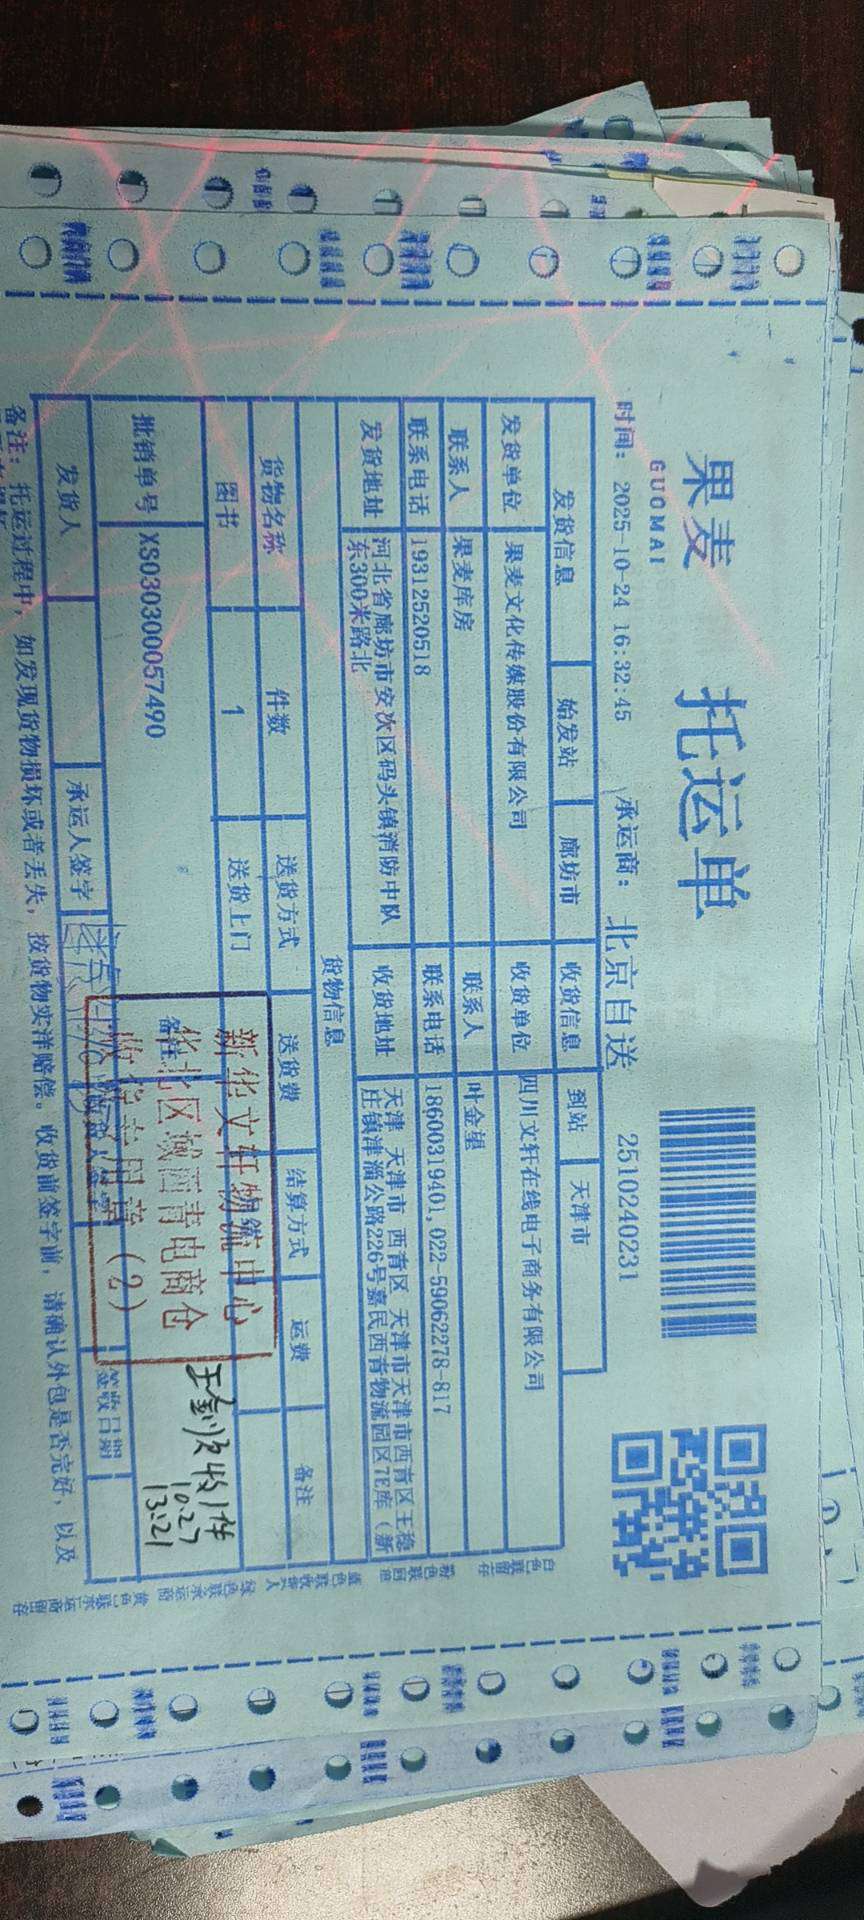 果麦
GUOMAI
托运单
时间: 2025-10-24 16:32:45 承运商: 北京自送 2510240231
发货信息 始发站 廊坊市 收货信息 到站 天津市
发货单位 果麦文化传媒股份有限公司 收货单位 四川文轩在线电子商务有限公司
联系人 果麦库房 联系人 叶金星
联系电话 19312520518 联系电话 18600319401,022-59062278-817
发货地址 河北省廊坊市安次区码头镇消防中队东300米路北 收货地址 天津 天津市 西青区 天津市天津市西青区王稳庄镇津淄公路226号嘉民西青物流园区7E库（新
货物信息
货物名称 件数 送货方式 送货费 结算方式 运费 备注
图书 1 送货上门
批销单号 XS030300057490 备注
新华文轩物流中心
华北区域西青电商仓
收货专用章(2)
收1件
10.27
13:21
发货人 承运人签字 签收日期
备注: 托运过程中, 如发现货物损坏或者丢失, 按货物实洋赔偿。收货前签字前, 请确认外包是否完好, 以及
白色联留存
粉色联回单
蓝色联收货人
绿色联承运商
黄色联承运商留存